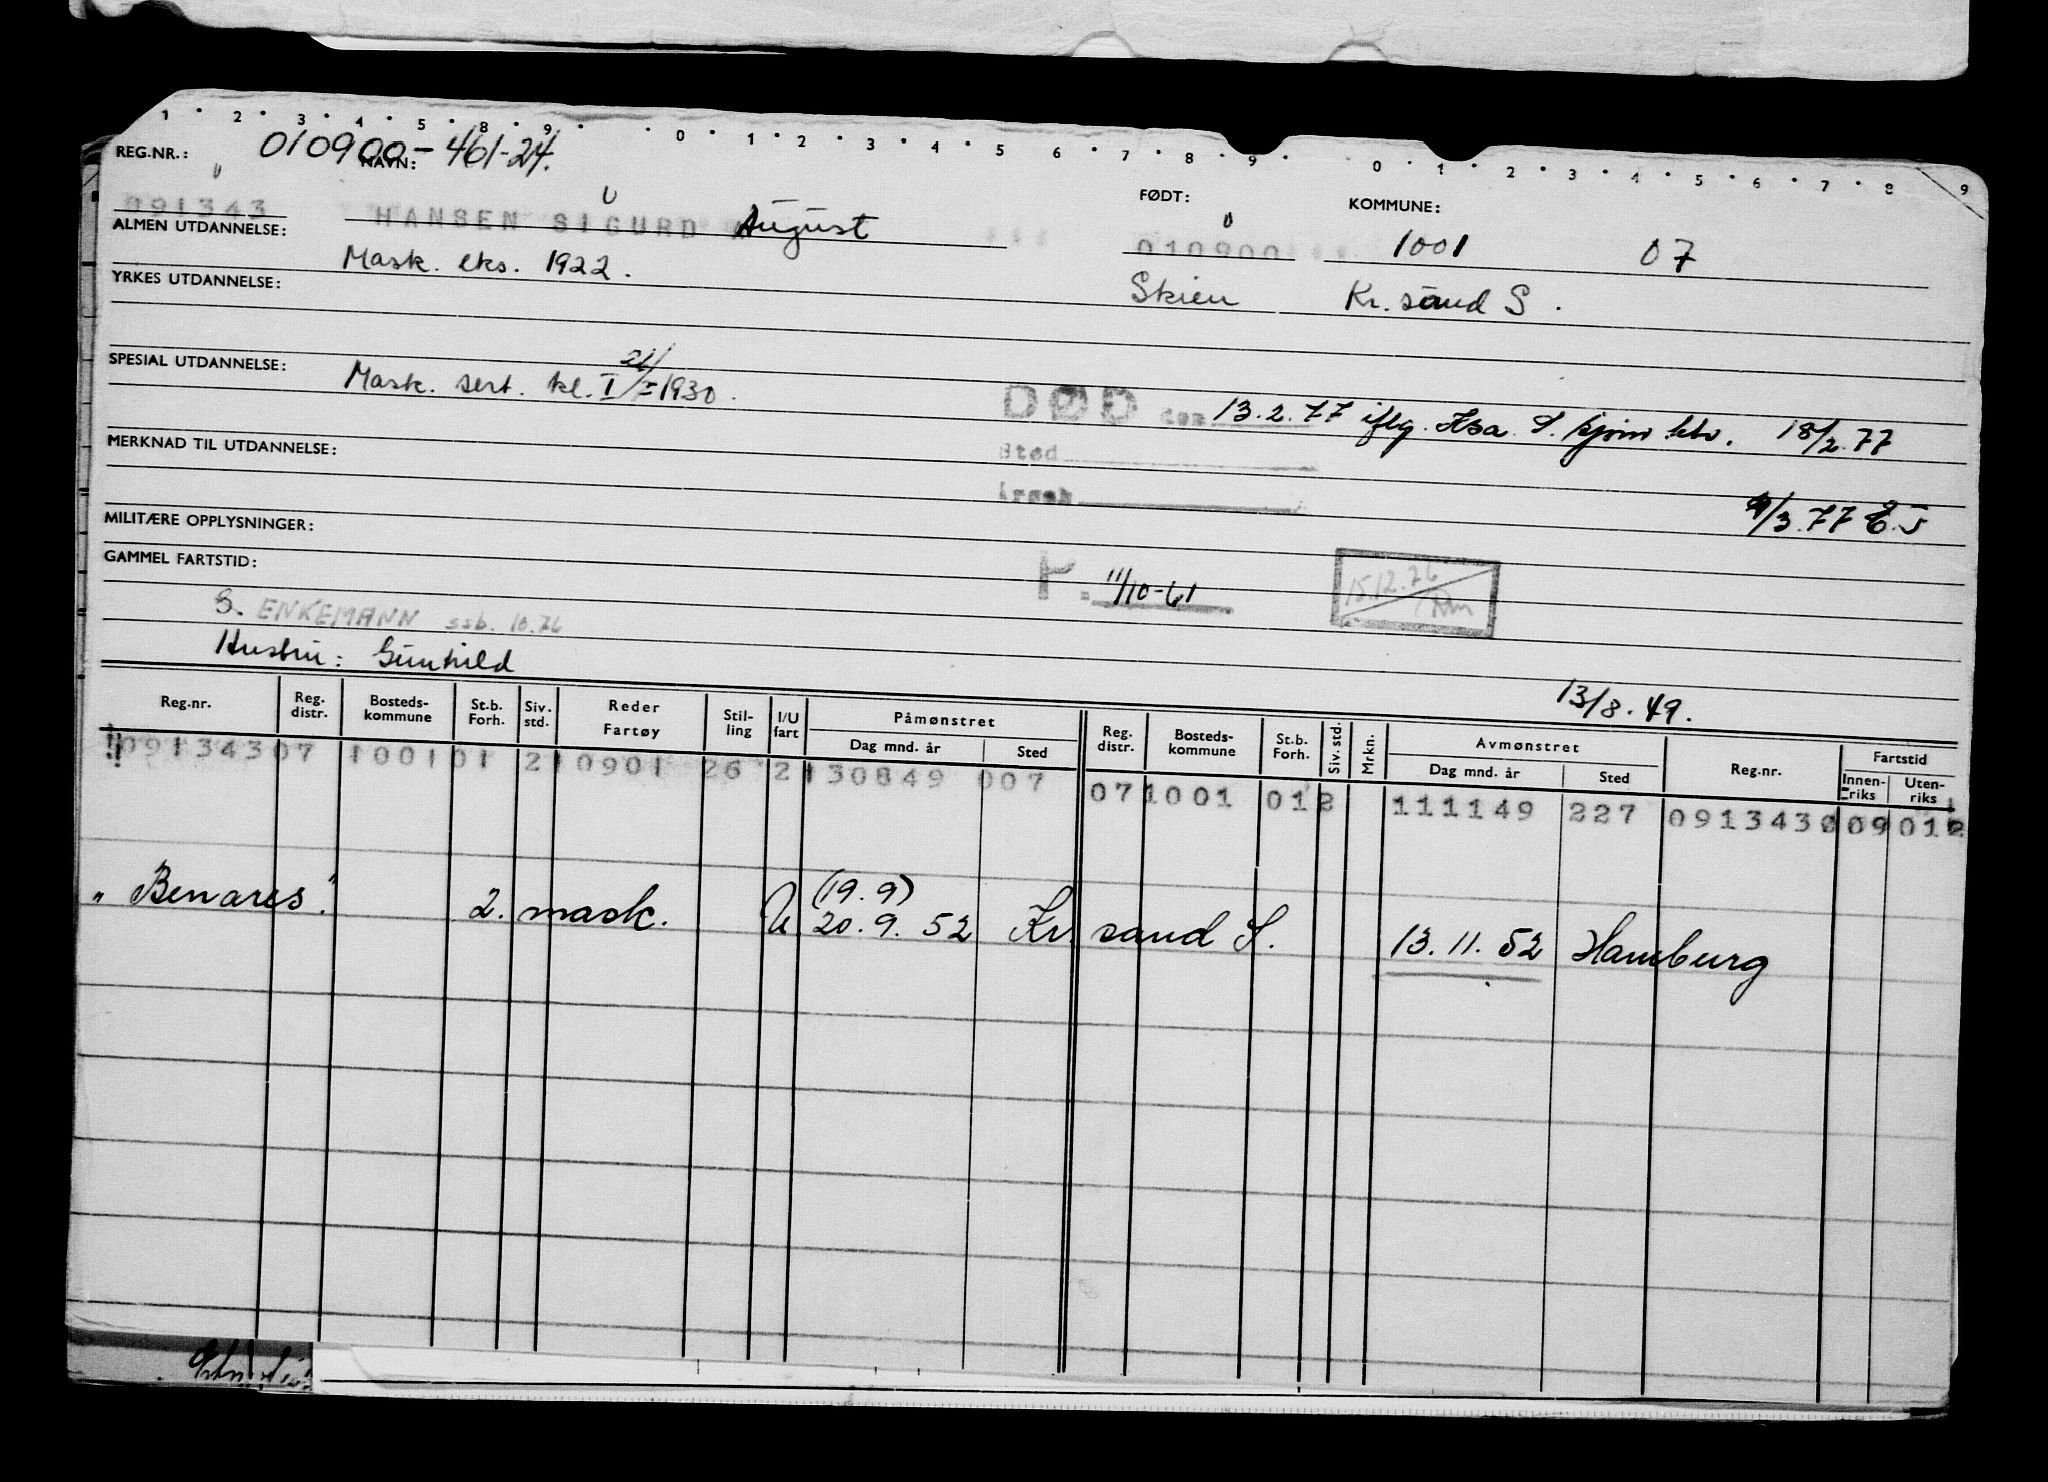 1 2 3 4 5 8 9 0 1 2 3 4 5 6 7 8 9 0 1 2 3 4 5 6 7 8 9
REG.NR.: 010900-461-24. NAVN: FØDT: KOMMUNE:
091343 HANSEN SIGURD August 010900 1001 07
ALMEN UTDANNELSE: Mask. eks. 1922. Skien Kr. sand S.
YRKES UTDANNELSE:
SPESIAL UTDANNELSE: Mask. sert. kl. I 1930.
DØD den 13.2.77 iflg. Kr.sand S. sjøm.ktr. 18/2.77
MERKNAD TIL UTDANNELSE: Sted
Årsak
9/3.77 E.J
MILITÆRE OPPLYSNINGER:
GAMMEL FARTSTID: P. 11/10-61 15.12.76
S. ENKEMANN ssb. 10.76
Hustru: Gunhild
13/8.49.
Reg.nr. Reg. distr. Bosteds-kommune St.b. Forh. Siv. std. Reder Fartøy Stil-ling I/U fart Påmønstret Dag mnd. år Sted Reg. distr. Bosteds-kommune St.b. Forh. Siv. std. Mrkn. Avmønstret Dag mnd. år Sted Reg.nr. Fartstid Innen-riks Uten-riks
091343 07 1001 01 2 10901 26 2 130849 007 07 1001 01 2 111149 227 091343 09 012
(19.9)
"Benares". 2. mask. U 20.9.52 Kr. sand S. 13.11.52 Hamburg